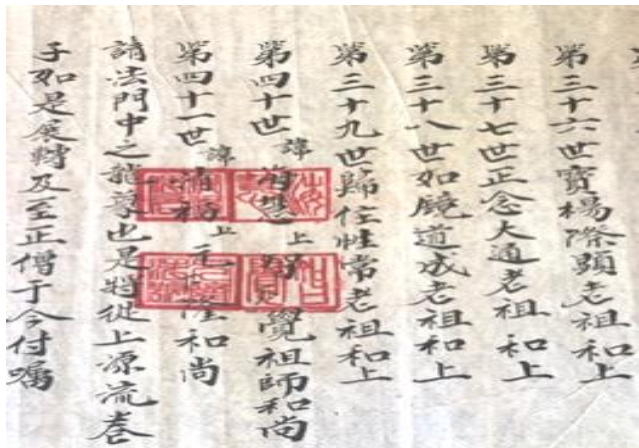 第三十六世寶楊際顯老祖和上
第三十七世正念大通老祖和上
第三十八世如鏡道成老祖和上
第三十九世歸位性常老祖和上
第四十世諱海上覺祖師和尚
第四十一世諱清上元隆和尚
請法門中之龍尊也是將從上源流卷
子如是展轉及至正僧于今付囑